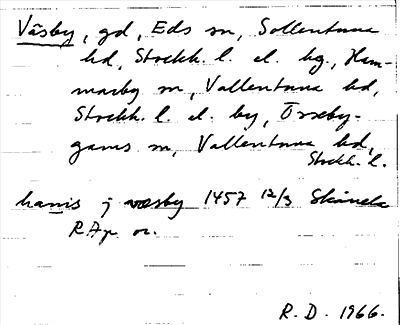 Väsby, gd, Eds sn, Sollentuna
hd, Stockh. l. el. hg., Ham-
marby sn, Vallentuna hd,
Stockh. l. el. by, Össeby-
garns sn, Vallentuna hd,
Stockh. l.
hanis j væsby 1457 12/3 Skånela
RAp or.
R.D. 1966.